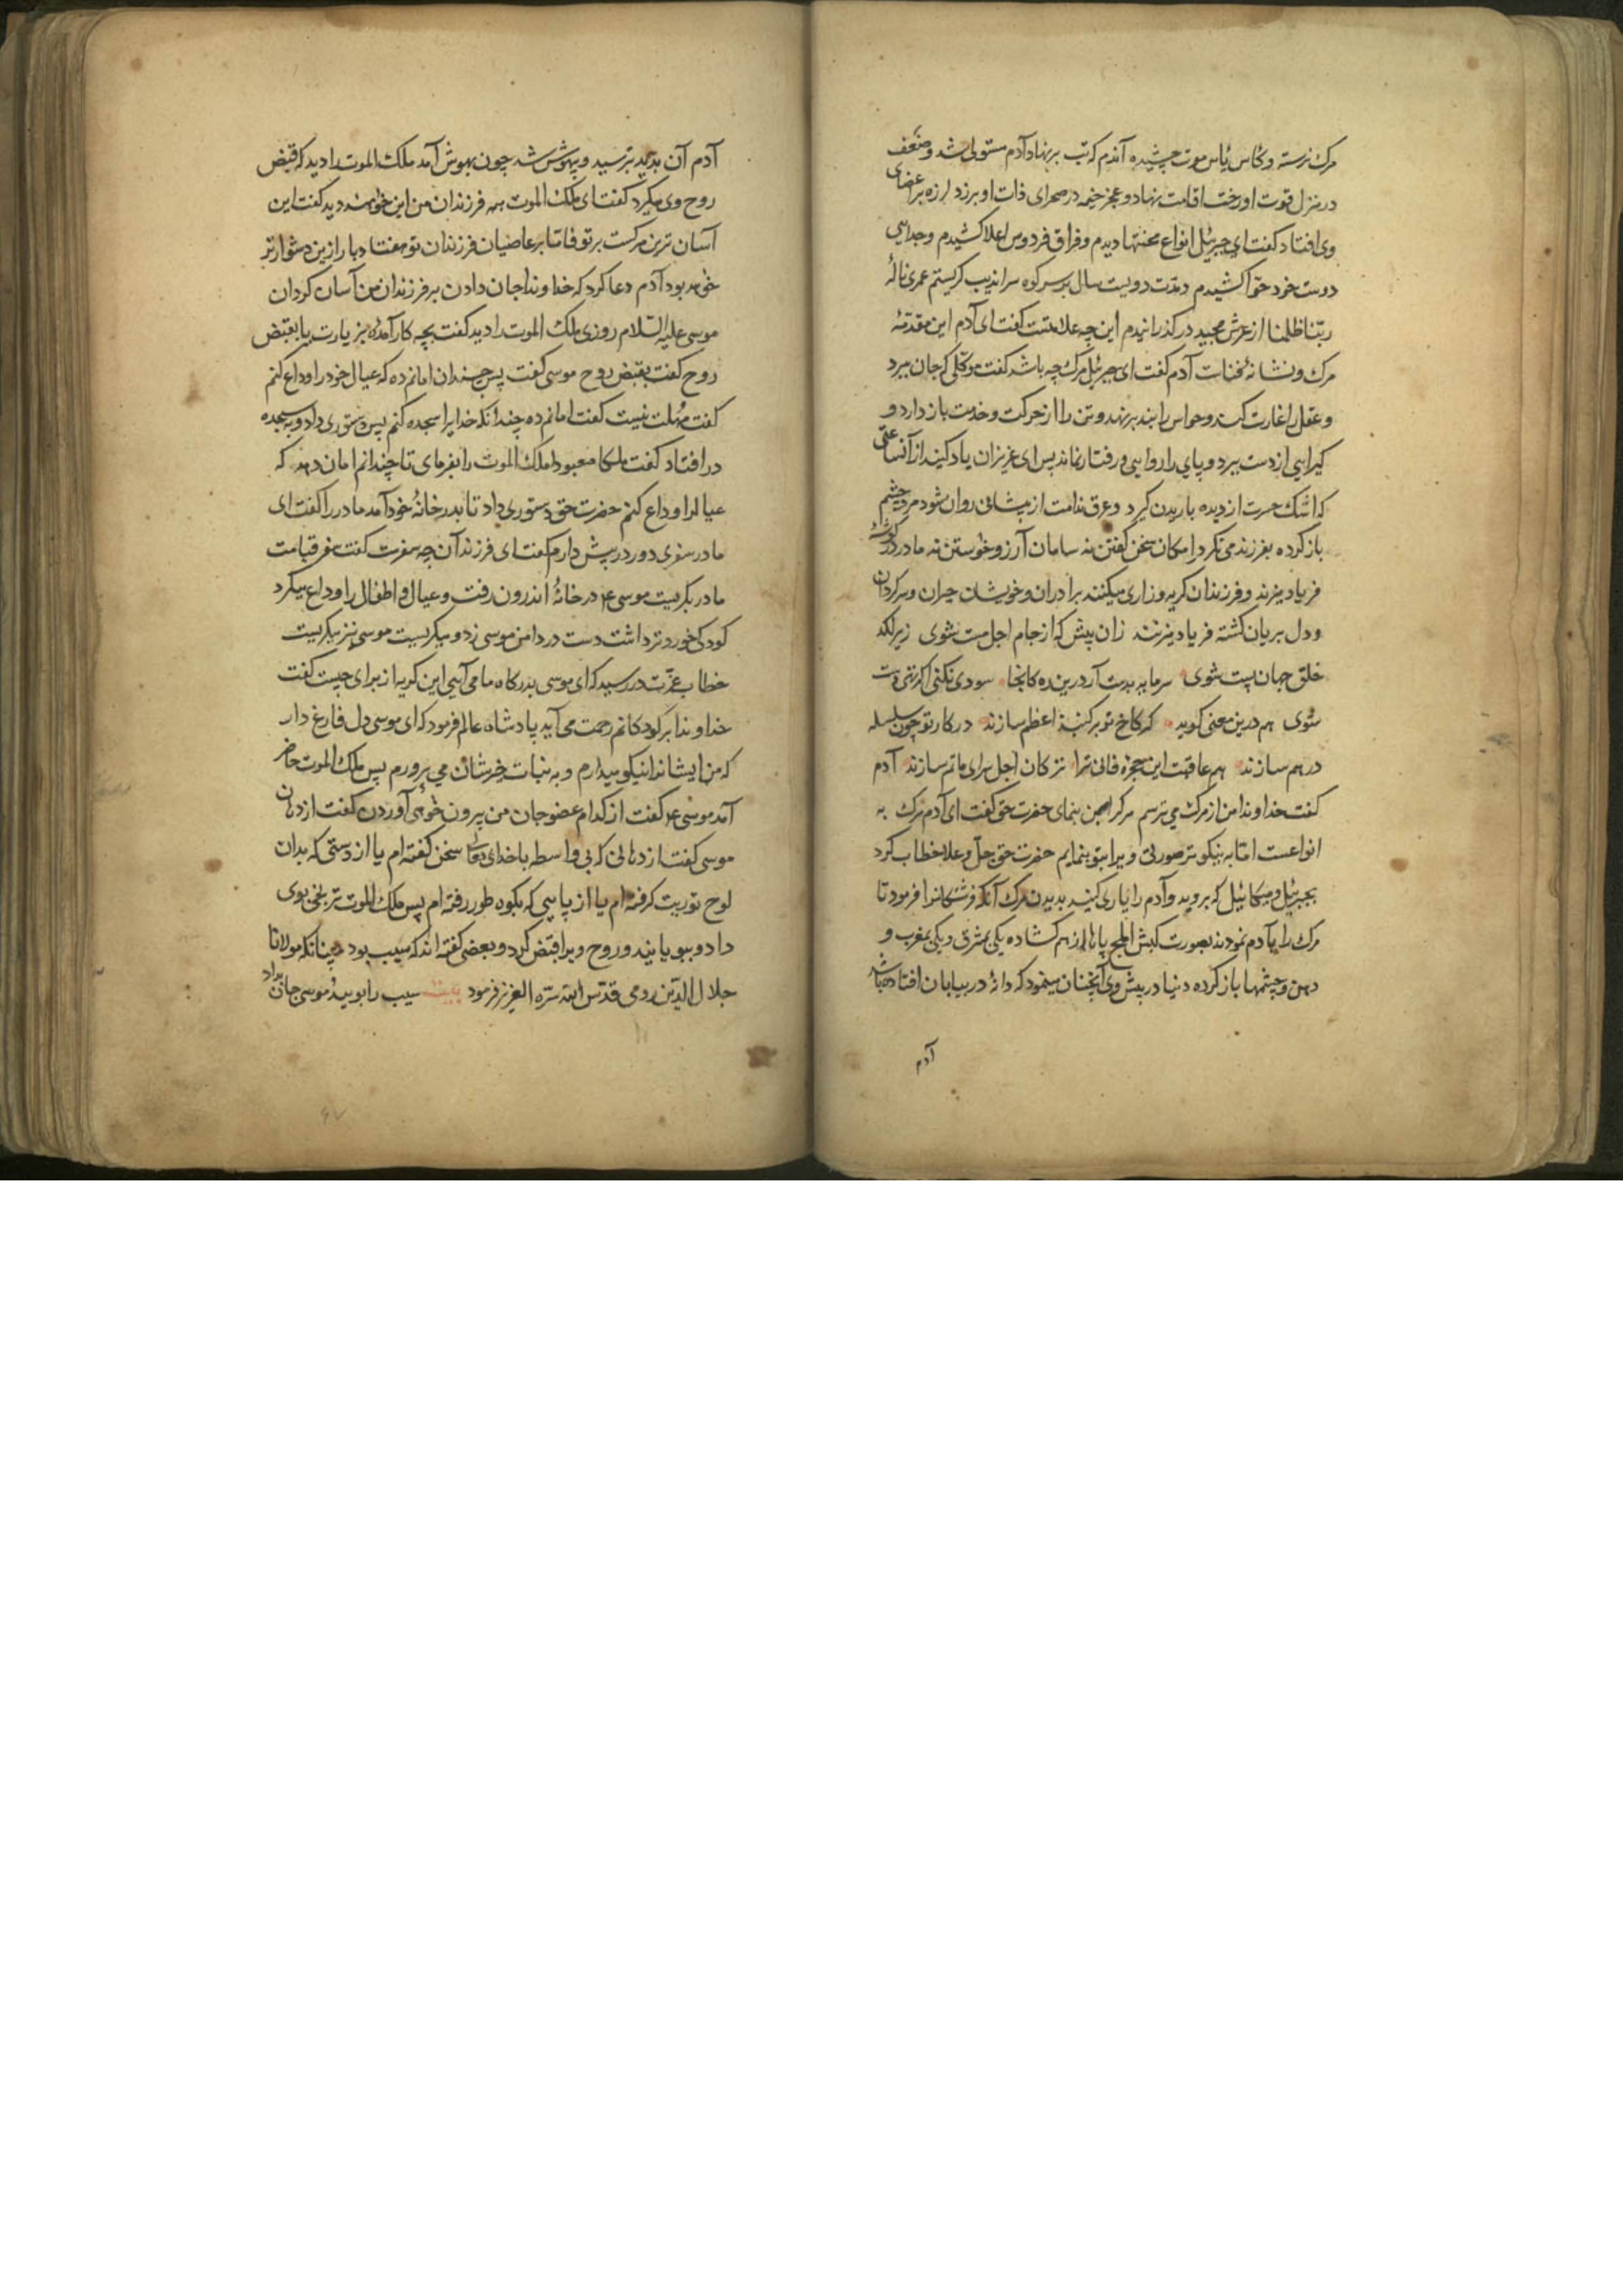 مرک نرسته و کاس یاس موت چشیده آندم که تب بر نهاد آدم مستولی شد و ضعف
در منزل قوت او رخت اقامت نهاد و عجز خیمه در صحرای ذات او برزد لرزه بر اعضای
وی افتاد کفت ای جبرئیل انواع محنتها دیدم و فراق فردوس اعلا کشیدم و جدایی
دوست خود حوا کشیدم و مدت دویست سال بر سر کوه سراندیب کریستم عمری نالهٔ
ربنا ظلمنا از عرش مجید در کذرانیدم این چه علامتست کفت ای آدم این مقدمهٔ
مرک و نشانهٔ آدم کفت ای جبرئیل مرک چه باشد کفت موکلی که جان ببرد
و عقل را غارت کند و حواس را بند برنهد و تن را از حرکت و خدمت باز دارد و
کیرایی از دست ببرد و پای را روایی و رفتار نماند پس ای عزیزان یاد کنید از آن ساعتی
که اشک حسرت از دیده باریدن کیرد و عرق ندامت از پیشانی روان شود مرد چشم
باز کرده بفرزند می نکرد امکان سخن کفتن نه سامان آرزو خواستن نه مادر در کوشهٔ
فریاد میزند و فرزندان کریه و زاری میکنند برادران و خویشان حیران و سرکردان
و دل بریان کشته فریاد میزنند زان پیش که از جام اجل مست شوی زیر لکد
خلق جهان پست شوی سرمایه بدست آر درین ده کانجا سودی نکنی اکر تهی دست
شوی هم درین معنی کوید که کاخ تو بر کنبد اعظم سازند در کار تو چون سلسله
در هم سازند هم عاقبت این حجرهٔ فانی ترا ترکان اجل سرای ماتم سازند آدم
کفت خداوندا من از مرک می ترسم مرک را بمن بنمای حضرت حق کفت ای آدم مرک به
انواعست اما به نیکوتر صورتی ویرا بتو بنمایم حضرت حق جل و علا خطاب کرد
بجبرئیل و میکائیل که بروید و آدم را یاری کنید بدیدن مرک آنکه فرشتکانرا فرمود تا
مرک را بآدم نمودند بصورت کبش املح پایها از هم کشاده یکی بمشرق و یکی بمغرب و
دهن و چشمها باز کرده دنیا در پیش وی آنچنان مینمود که دانهٔ در بیابان افتاده باشد
آدم
آدم آن بدید بترسید و بیهوش شد چون بهوش آمد ملک الموت را دید که قبض
روح وی میکرد کفت ای ملک الموت همه فرزندان من این خواهند دید کفت این
آسان ترین مرکست بر تو فاما بر عاصیان فرزندان تو هفتاد بار ازین دشوارتر
خواهد بود آدم دعا کرد که خداوندا جان دادن بر فرزندان من آسان کردان
موسی علیه السلام روزی ملک الموت را دید کفت بچه کار آمدهٔ بزیارت یا بقبض
روح کفت بقبض روح موسی کفت پس چندان امانم ده که عیال خود را وداع کنم
کفت مهلت نیست کفت امانم ده چندانکه خدایرا سجده کنم پس دستوری داد و بسجده
در افتاد کفت ملکا معبودا ملک الموت را بفرمای تا چندانم امان دهد که
عیالرا وداع کنم حضرت حق دستوری داد تا بدر خانهٔ خود آمد مادر را کفت ای
مادر سفری دور در پیش دارم کفت ای فرزند آن چه سفرست کفت سفر قیامت
مادر بکریست موسی ع در خانهٔ اندرون رفت و عیال و اطفال را وداع میکرد
کودکی خوردتر داشت دست در دامن موسی زد و میکریست موسی نیز میکریست
خطاب عزت در رسید که ای موسی بدرکاه ما می آیی این کریه از برای چیست کفت
خداوندا بر کودکانم رحمت می آید پادشاه عالم فرمود که ای موسی دل فارغ دار
که من ایشانرا نیکو میدارم و به نبات خیرشان می پرورم پس ملک الموت حاضر
آمد موسی ع کفت از کدام عضو جان من بیرون خواهی آوردن کفت از دهان
موسی کفت از دهانی که بی واسطه با خدای تعالی سخن کفته ام یا از دستی که بدان
لوح توریت کرفته ام یا از پایی که بکوه طور رفته ام پس ملک الموت ترنجی بوی
داد و ببویانید و روح ویرا قبض کرد و بعضی کفته اند که سیب بود چنانکه مولانا
جلال الدین رومی قدس الله سره العزیز فرمود بیت سیب را بویید موسی جان بداد
۶۷